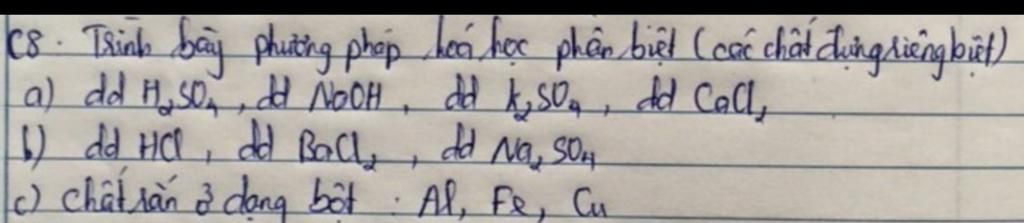 C8. Trình bày phương pháp hoá học phân biệt (các chất đựng riêng biệt)
a) dd H₂SO₄, dd NaOH, dd K₂SO₄, dd CaCl₂
b) dd HCl, dd BaCl₂, dd Na₂SO₄
c) chất rắn ở dạng bột: Al, Fe, Cu